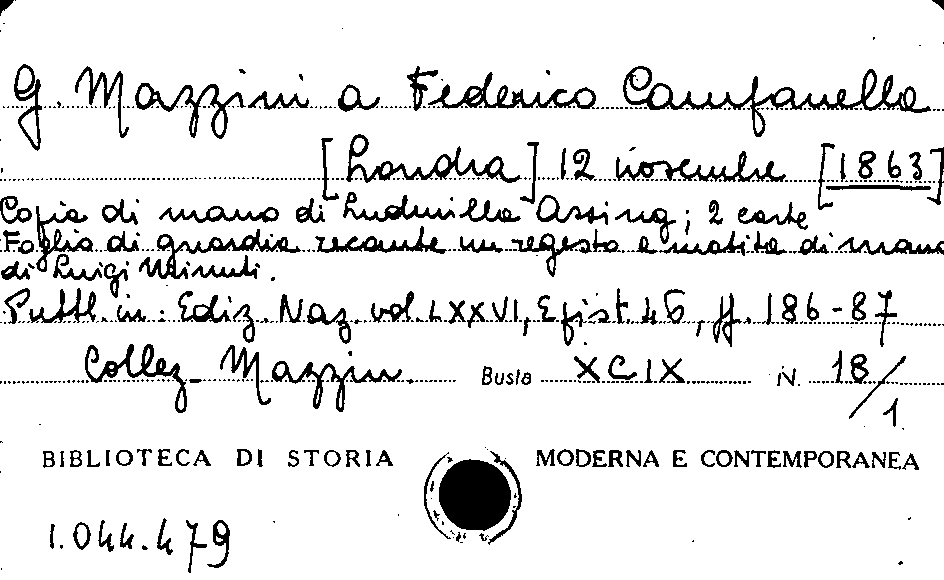 G. Mazzini a Federico Campanella
[Londra] 12 novembre [1863]
Copia di mano di Ludmilla Assing; 2 carte
Foglio di guardia recante un regesto a matita di mano
di Luigi Minuti.
Pubbl. in: Ediz. Naz. vol. LXXVI, Epist. 46, pp. 186-87
Collez. Mazzin. Busta XCIX N. 18/1
BIBLIOTECA DI STORIA MODERNA E CONTEMPORANEA
1.044.479